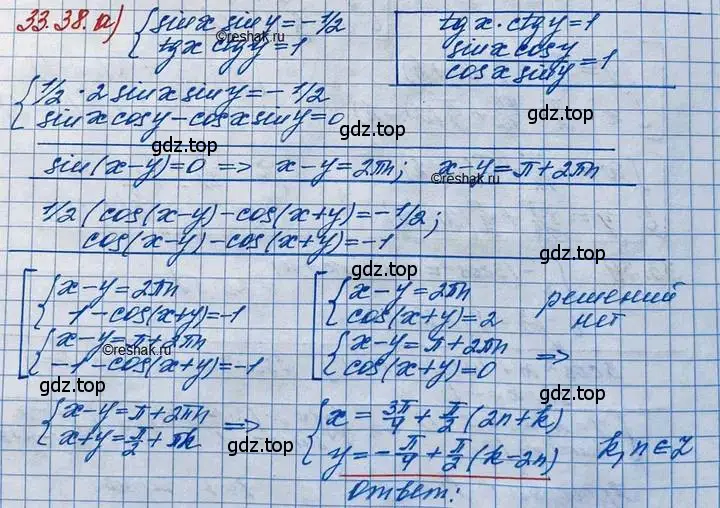 33.38.а) { sinx siny = -1/2
tgx ctgy = 1
tgx · ctgy = 1
sinx cosy / cosx siny = 1
{ 1/2 · 2 sinx siny = -1/2
sinx cosy - cosx siny = 0
gdz.top
gdz.top
sin(x-y) = 0 => x-y = 2πn; x-y = π + 2πn
©reshak.ru
1/2 (cos(x-y) - cos(x+y) = -1/2;
cos(x-y) - cos(x+y) = -1
gdz.top
gdz.top
[ { x-y = 2πn
1 - cos(x+y) = -1
{ x-y = π + 2πn
-1 - cos(x+y) = -1
©reshak.ru
[ { x-y = 2πn
cos(x+y) = 2
решений
нет
{ x-y = π + 2πn
cos(x+y) = 0 =>
gdz.top
gdz.top
{ x-y = π + 2πn
x+y = π/2 + πk =>
{ x = 3π/4 + π/2 (2n+k)
y = -π/4 + π/2 (k-2n) k, n ∈ Z
gdz.top
gdz.top
Ответ: